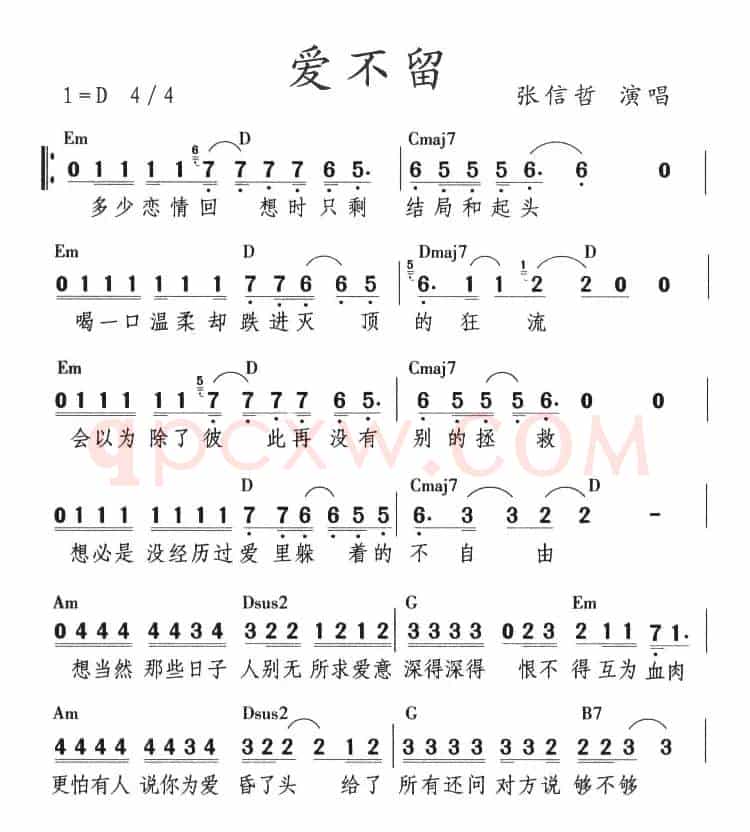 爱不留
1=D 4/4 张信哲 演唱
Em D Cmaj7
0 1 1 1 1 6 7 7 7 7 6 5. 6 5 5 5 6. 6 0
多少恋情回 想时只剩 结局和起头
Em D Dmaj7 D
0 1 1 1 1 1 1 7 7 6 6 6 5 5 6. 1 1 1 2 2 0 0
喝一口温柔却跌进灭 顶 的 狂 流
Em D Cmaj7
0 1 1 1 1 1 5 7 7 7 7 6 5. 6 5 5 5 6. 0 0
会以为除了彼 此再没有 别的拯救
qpcxw.COM
D Cmaj7 D
0 1 1 1 1 1 1 1 7 7 6 6 5 5 6. 3 3 2 2 -
想必是没经历过爱里躲 着的 不 自 由
Am Dsus2 G Em
0 4 4 4 4 4 4 4 3 2 2 1 2 1 2 3 3 3 3 0 2 3 2 1 1 7 1.
想当然那些日子 人别无所求爱意 深得深得 恨不得互为血肉
Am Dsus2 G B7
4 4 4 4 4 4 4 4 3 2 2 2 1 2 3 3 3 3 3 3 3 2 2 3 3
更怕有人说你为爱 昏了头 给了 所有还问对方说够不够